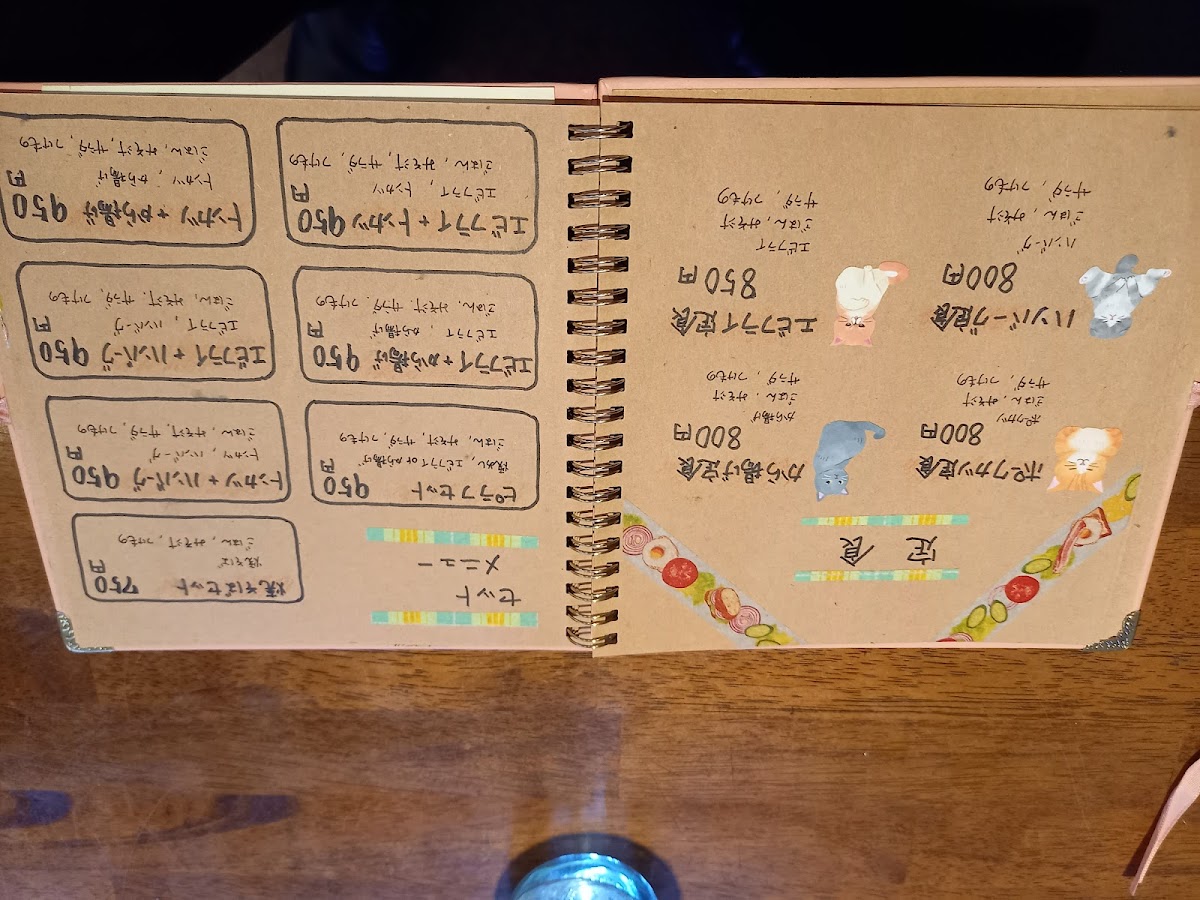 定食
ポークカツ定食
800円
ポークカツ
ごはん、みそ汁
サラダ、つけもの
から揚げ定食
800円
から揚げ
ごはん、みそ汁
サラダ、つけもの
ハンバーグ定食
800円
ハンバーグ
ごはん、みそ汁
サラダ、つけもの
エビフライ定食
850円
エビフライ
ごはん、みそ汁
サラダ、つけもの
セット
メニュー
焼そばセット 750円
焼そば
ごはん、みそ汁、つけもの
ピラフセット 950円
焼めし、エビフライ or から揚げ
ごはん、みそ汁、サラダ、つけもの
トンカツ+ハンバーグ 950円
トンカツ、ハンバーグ
ごはん、みそ汁、サラダ、つけもの
エビフライ+から揚げ 950円
エビフライ、から揚げ
ごはん、みそ汁、サラダ、つけもの
エビフライ+ハンバーグ 950円
エビフライ、ハンバーグ
ごはん、みそ汁、サラダ、つけもの
エビフライ+トンカツ 950円
エビフライ、トンカツ
ごはん、みそ汁、サラダ、つけもの
トンカツ+から揚げ 950円
トンカツ、から揚げ
ごはん、みそ汁、サラダ、つけもの